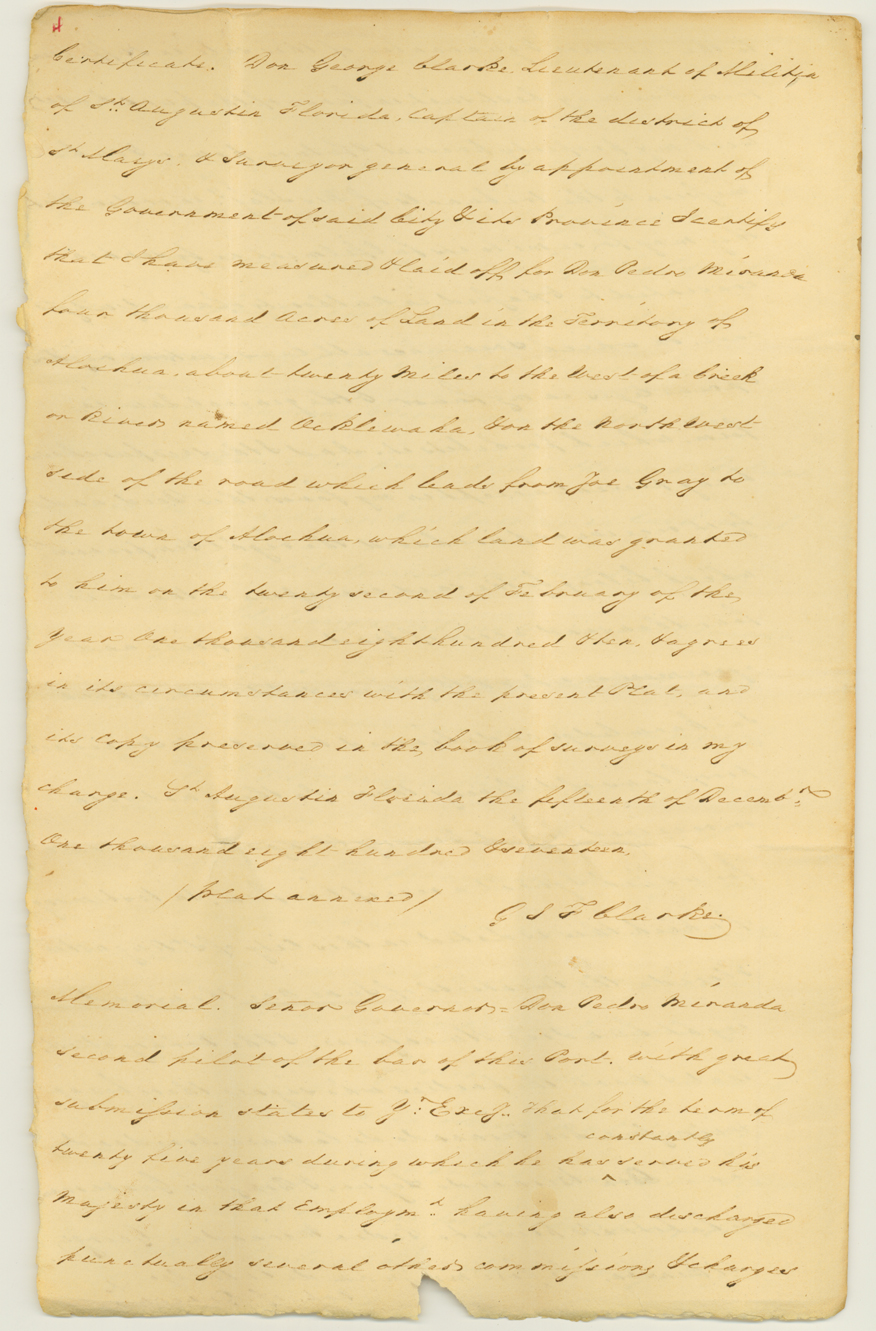 Certificate. Don George Clarke Lieutenant of Militia
of St. Augustin Florida, Captain of the district of
St Marys, & Surveyor general by appointment of
the Government of said City & its Province I certify
that I have measured & laid off for Don Pedro Miranda
four thousand Acres of Land in the Territory of
Alochua, about twenty Miles to the West of a Creek
or River named Ocklewaha, & on the North West
side of the road which leads from Joe Gray to
the town of Alochua, which land was granted
to him on the twenty second of February of the
year One thousand eight hundred & ten, & agrees
in its circumstances with the present Plat, and
its copy preserved in the book of surveys in my
charge. St Augustin Florida the fifteenth of Decembr.
One thousand eight hundred & seventeen.
/ Plat annexed /
G I F Clarke.
Memorial. Señor Governor = Don Pedro Miranda
second pilot of the bar of this Port. with great
submission states to Yr. Excy. that for the term of
constantly
twenty five years during which he has ^ served his
Majesty in that Employmt. having also discharged
punctually several other commissions & charges